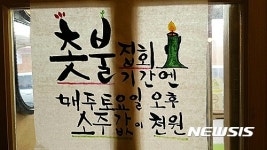 촛불 집회
기간엔
매주 토요일 오후
소주값이 천원
NEWSIS